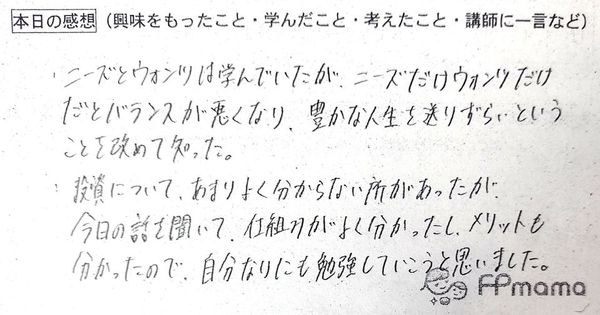 本日の感想（興味をもったこと・学んだこと・考えたこと・講師に一言など）
・ニーズとウォンツは学んでいたが、ニーズだけウォンツだけ
だとバランスが悪くなり、豊かな人生を送りずらいという
ことを改めて知った。
・投資について、あまりよく分からない所があったが、
今日の話を聞いて、仕組みがよく分かったし、メリットも
分かったので、自分なりにも勉強していこうと思いました。
FPmama